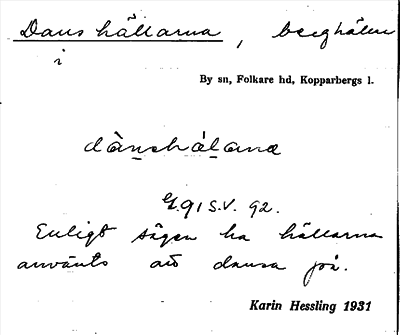 Danshällarna, berghällar
i
By sn, Folkare hd, Kopparbergs l.
dànsháḷana
G.91 S.V. 92.
Enligt sägen ha hällarna
använts att dansa på.
Karin Hessling 1931